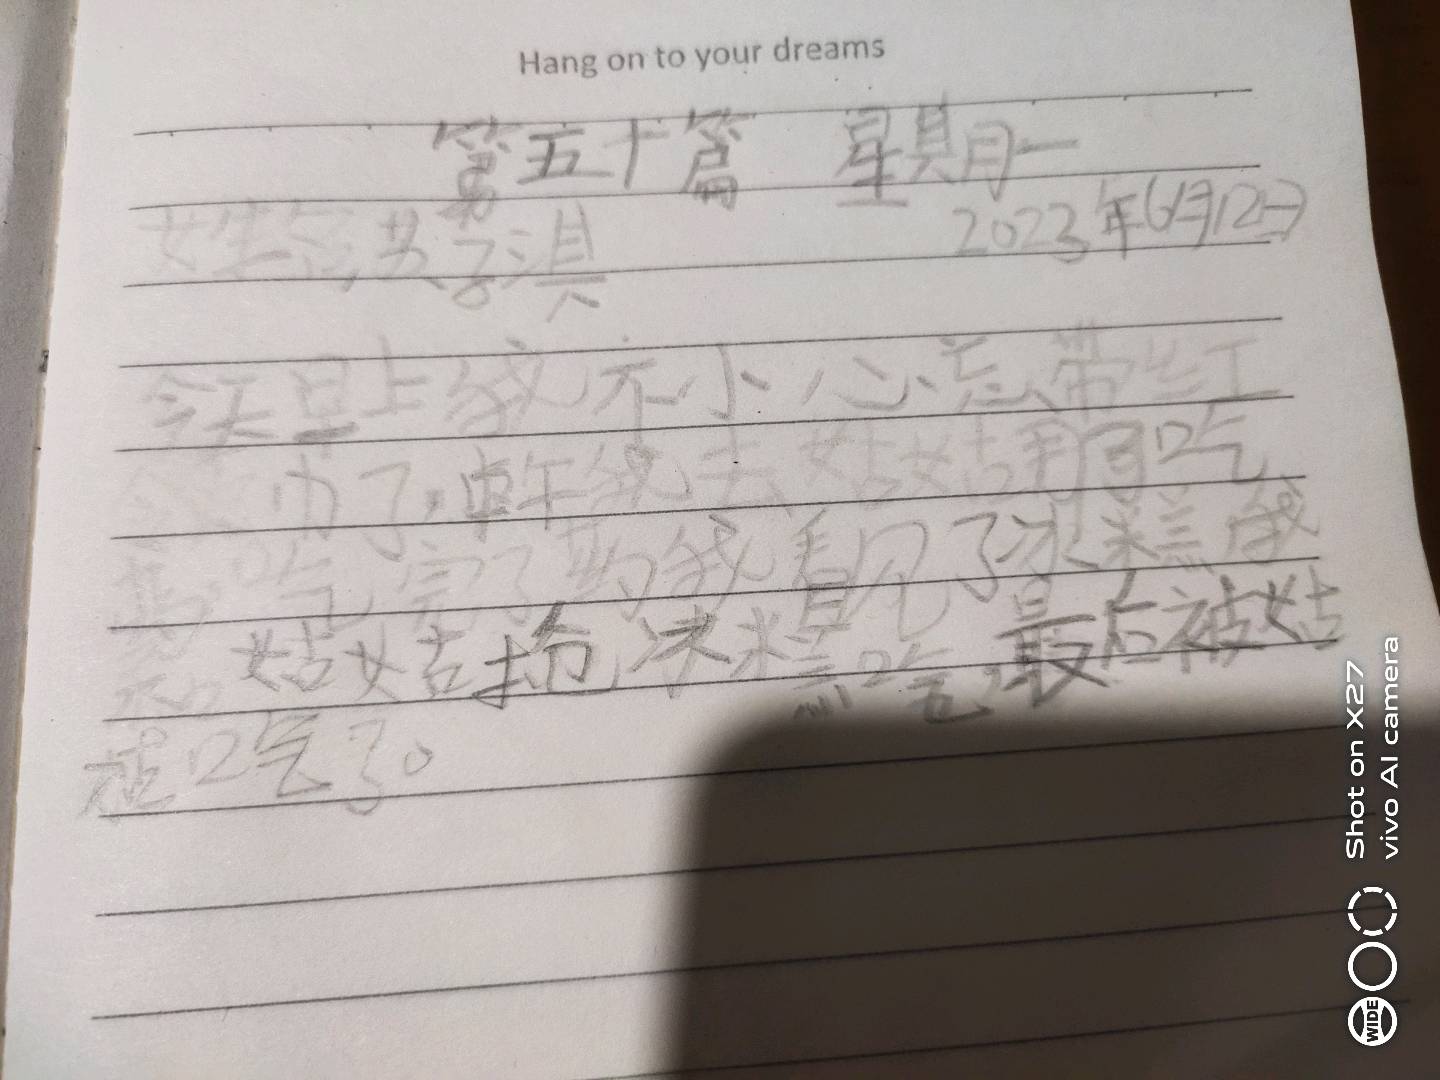 Hang on to your dreams
第五十篇 星期一
姓名
2023年6月12日
今天早上我不小心忘带红
巾了,中午我去姑姑那吃
吃完了药我看见了冰糕我
姑姑抢冰糕吃,最后被姑
吃了。
Shot on X27
vivo AI camera
WIDE